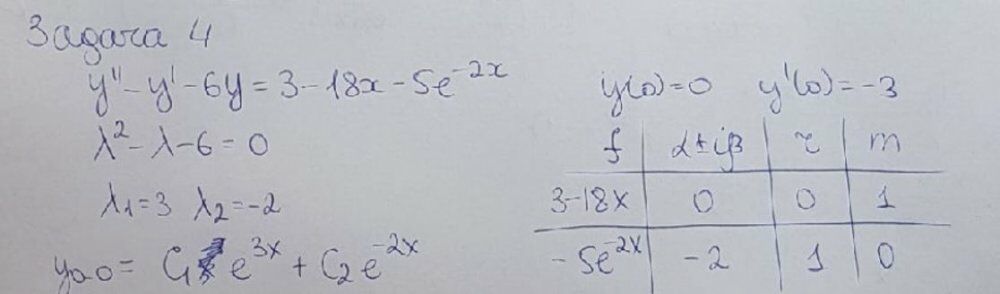 Задача 4
y'' - y' - 6y = 3 - 18x - 5e^{-2x}
y(0) = 0 y'(0) = -3
λ² - λ - 6 = 0
λ₁ = 3 λ₂ = -2
y₀₀ = C₁ e^{3x} + C₂ e^{-2x}
f α ± iβ r m
3 - 18x 0 0 1
- 5e^{-2x} -2 1 0